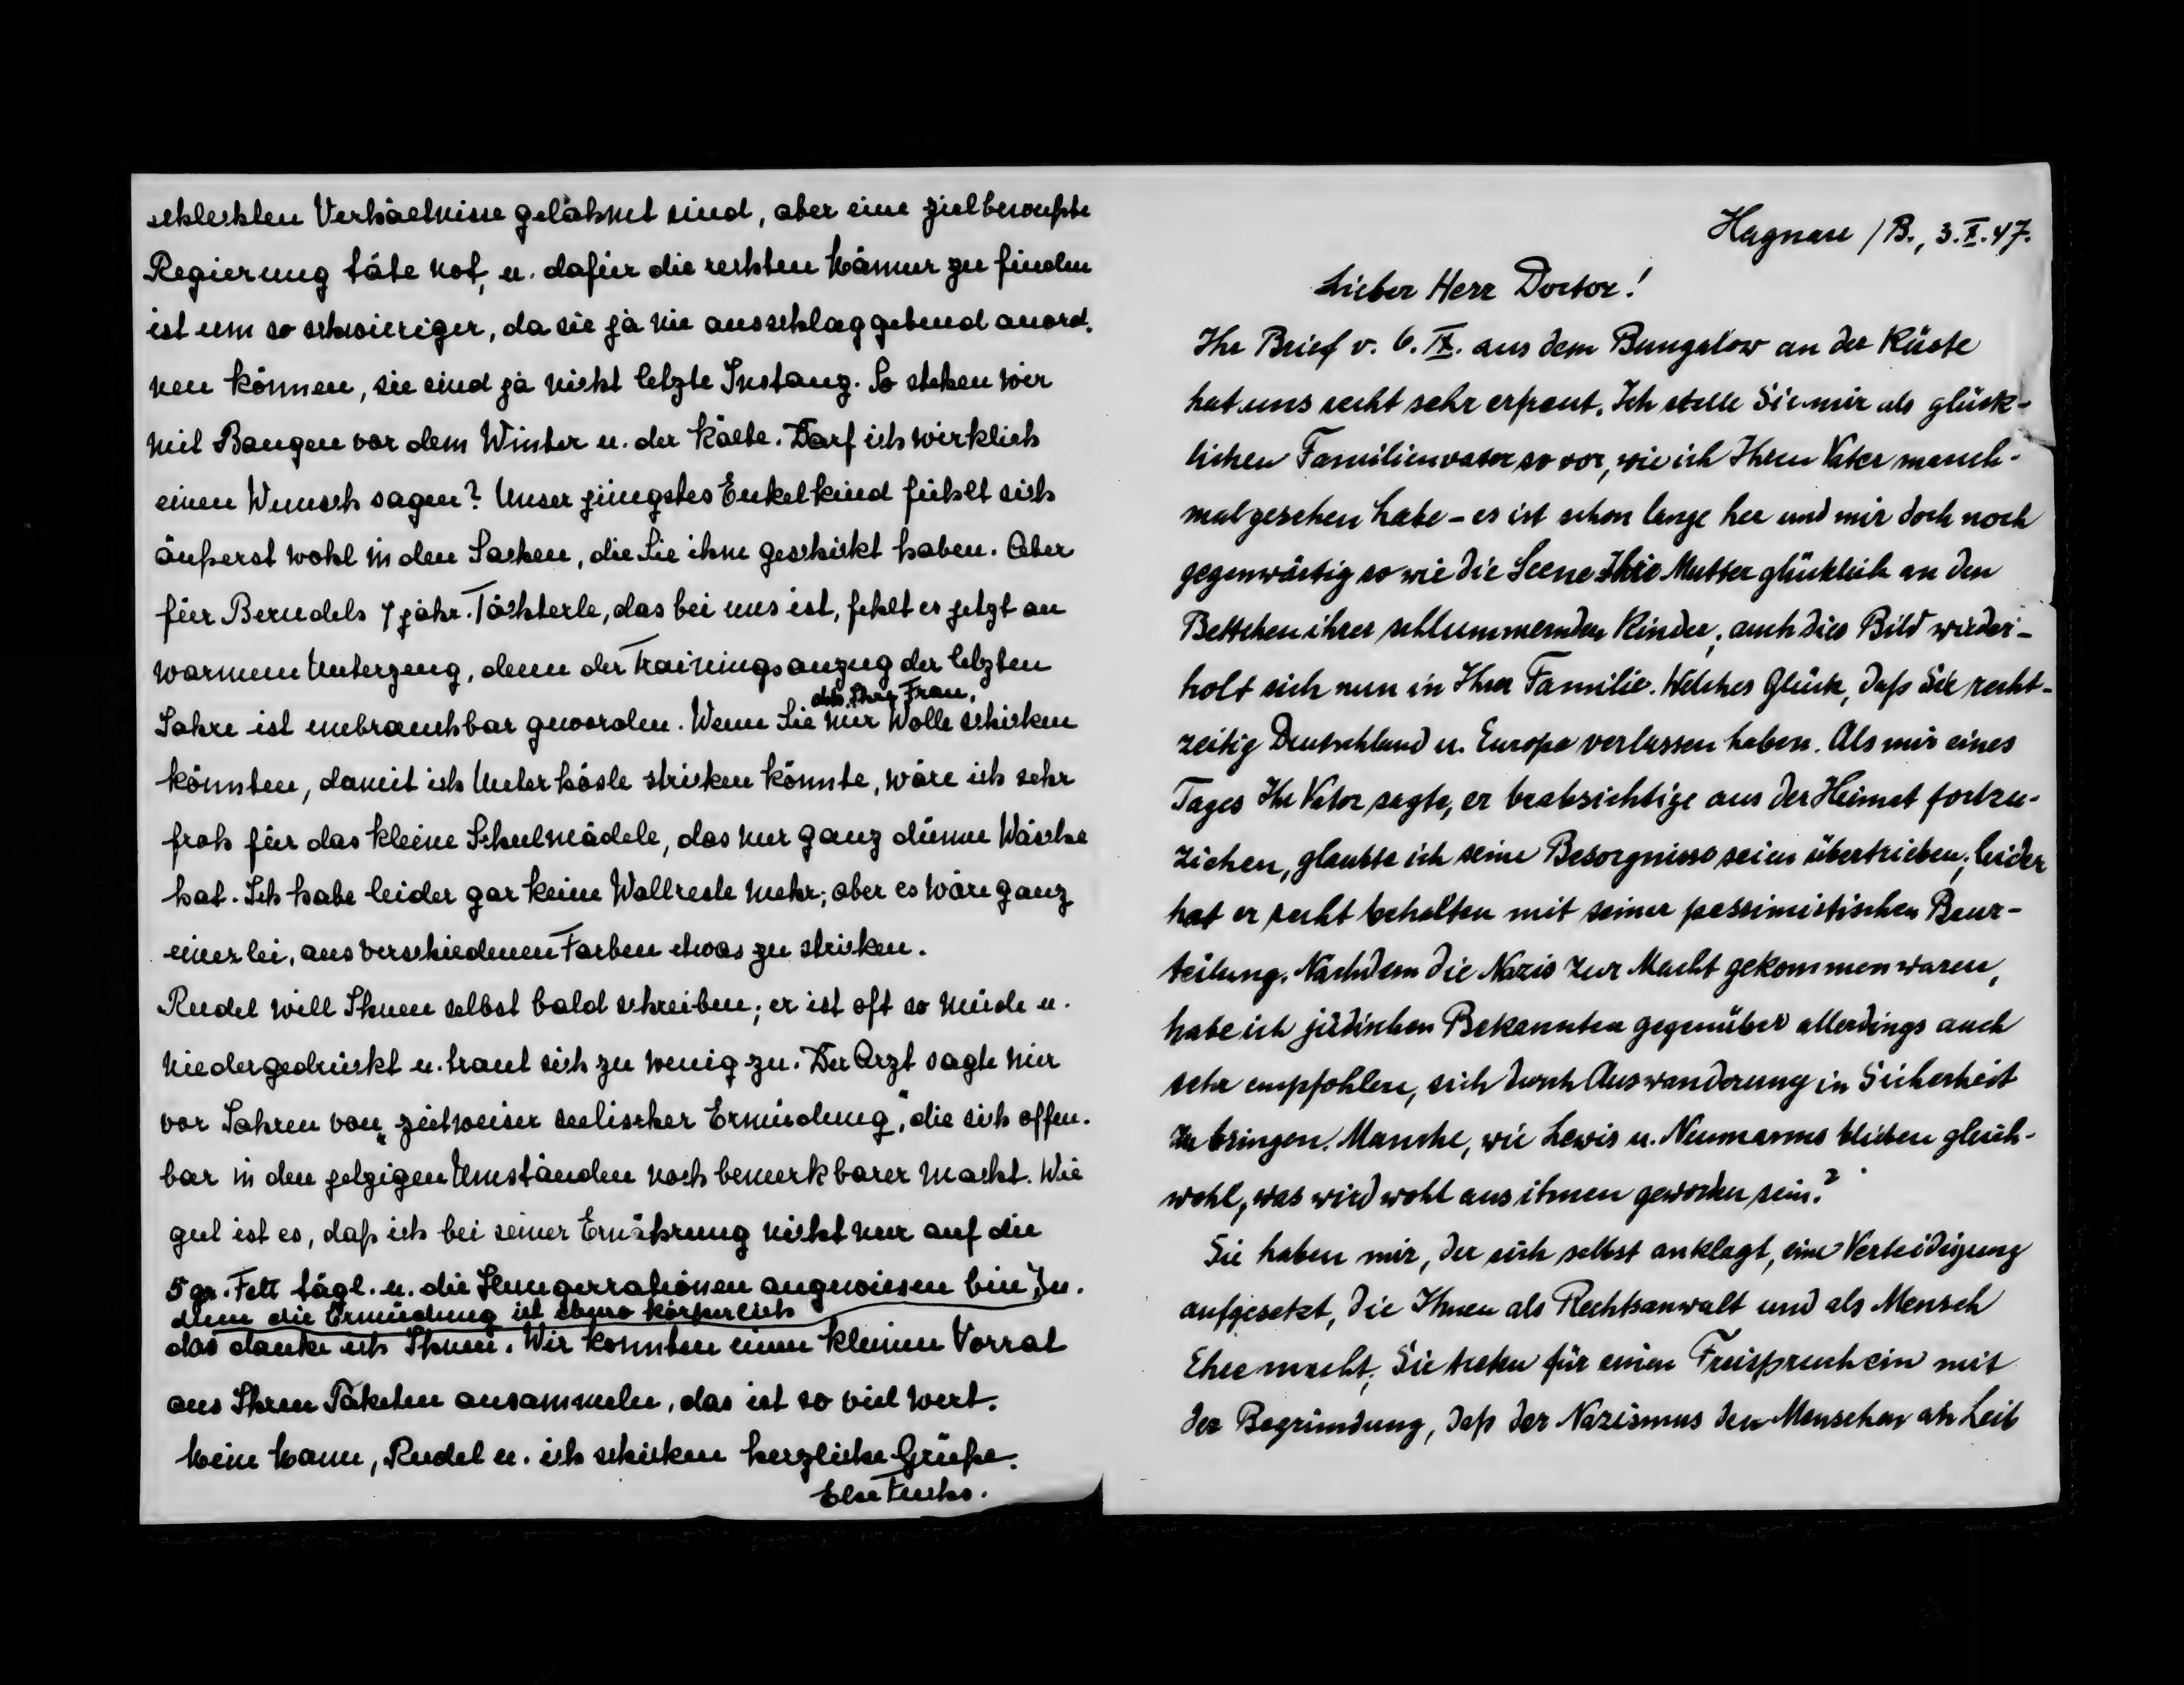 schlechten Verhältnisse gelähmt sind, aber eine zielbewußte
Regierung täte not, u. dafür die rechten Männer zu finden
ist um so schwieriger, da sie ja nie ausschlaggebend anord-
nen können, sie sind ja nicht letzte Instanz. So stehen wir
mit Bangen vor dem Winter u. der Kälte. Darf ich wirklich
einen Wunsch sagen? Unser jüngstes Enkelkind fühlt sich
äußerst wohl in den Sachen, die Sie ihm geschickt haben. Aber
für Berndels 7 jähr. Töchterle, das bei uns ist, fehlt es jetzt an
warmem Unterzeug, denn der Trainingsanzug der letzten
Jahre ist unbrauchbar geworden. Wenn Sie mir Wolle schicken
Ihre Frau,
könnten, damit ich Unterhösle stricken könnte, wäre ich sehr
froh für das kleine Schulmädele, das nur ganz dünne Wäsche
hat. Ich habe leider gar keine Wollreste mehr; aber es wäre ganz
einerlei, aus verschiedenen Farben etwas zu stricken.
Rudel will Ihnen selbst bald schreiben; er ist oft so müde u.
niedergedrückt u. traut sich zu wenig zu. Der Arzt sagte mir
vor Jahren von "zeitweiser seelischer Ermüdung", die sich offen-
bar in den jetzigen Umständen noch bemerkbarer macht. Wie
gut ist es, daß ich bei seiner Ernährung nicht nur auf die
5 gr. Fett tägl. u. die Hungerrationen angewiesen bin,
denn die Ermüdung ist ebenso körperlich
das danke ich Ihnen. Wir konnten einen kleinen Vorrat
aus Ihren Paketen ansammeln, das ist so viel wert.
Mein Mann, Rudel u. ich schicken herzliche Grüße.
Else Fuchs.
Hagnau / B., 3. X. 47.
Lieber Herr Doctor!
Ihr Brief v. 6. IX. aus dem Bungalow an der Küste
hat uns recht sehr erfreut. Ich stelle Sie mir als glück-
lichen Familienvater so vor, wie ich Ihren Vater manch-
mal gesehen habe – es ist schon lange her und mir doch noch
gegenwärtig so wie die Scene Ihre Mutter glücklich an den
Bettchen ihrer schlummernden Kinder; auch dies Bild wieder-
holt sich nun in Ihrer Familie. Welches Glück, daß Sie recht-
zeitig Deutschland u. Europa verlassen haben. Als mir eines
Tages Ihr Vater sagte, er beabsichtige aus der Heimat fortzu-
ziehen, glaubte ich seine Besorgnisse seien übertrieben; leider
hat er recht behalten mit seiner pessimistischen Beur-
teilung. Nachdem die Nazis zur Macht gekommen waren,
habe ich jüdischen Bekannten gegenüber allerdings auch
sehr empfohlen, sich durch Auswanderung in Sicherheit
zu bringen. Manche, wie Lewis u. Neumanns blieben gleich-
wohl, was wird wohl aus ihnen geworden sein?
Sie haben mir, der sich selbst anklagt, eine Verteidigung
aufgesetzt, die Ihnen als Rechtsanwalt und als Mensch
Ehre macht; Sie treten für einen Freispruch ein mit
der Begründung, daß der Nazismus den Menschen an Leib